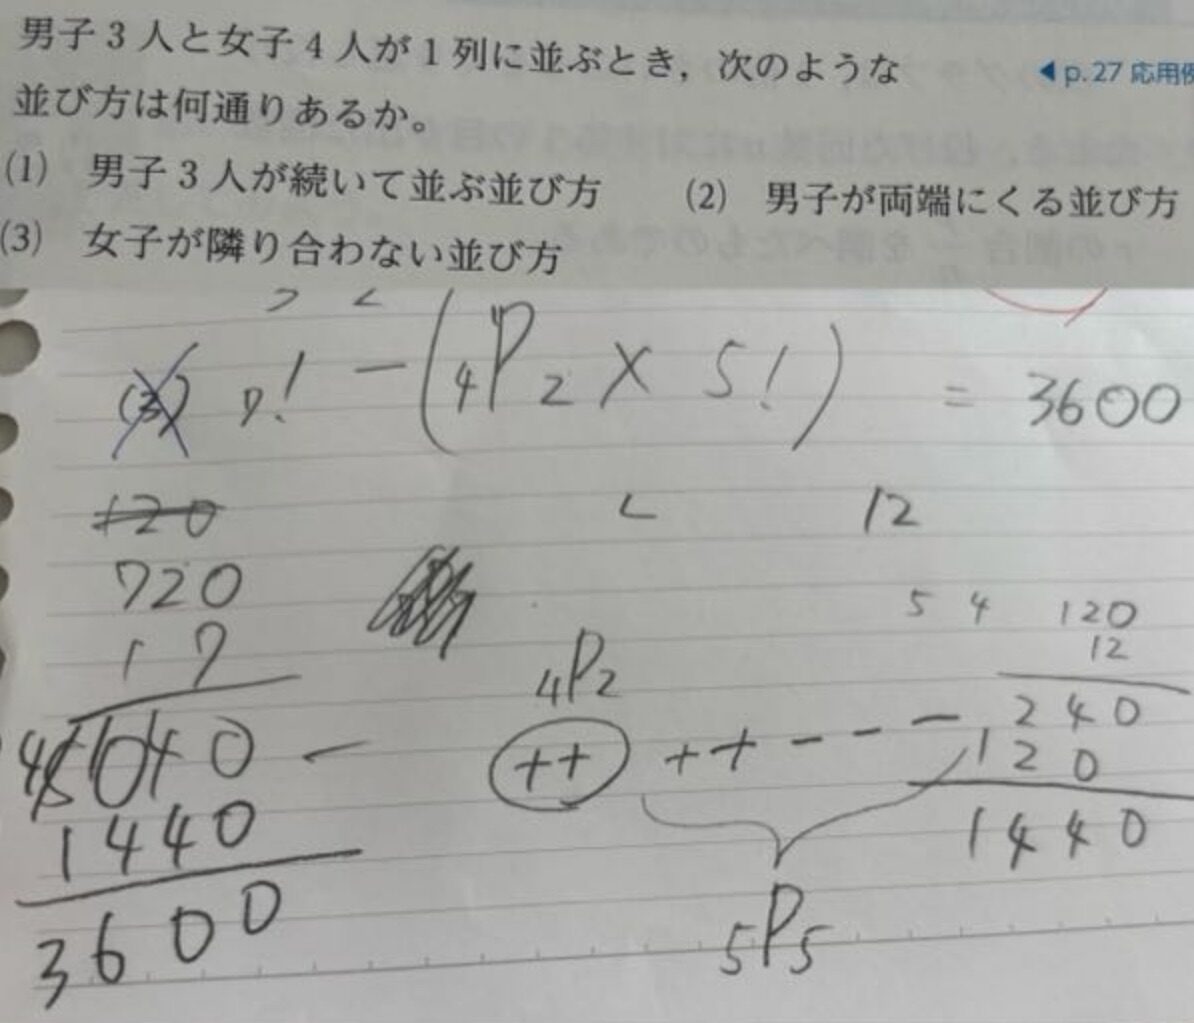 男子3人と女子4人が1列に並ぶとき，次のような
◀p.27 応用例
並び方は何通りあるか。
(1) 男子3人が続いて並ぶ並び方 (2) 男子が両端にくる並び方
(3) 女子が隣り合わない並び方
(3) 7! - (4P2 × 5!) = 3600
120
12
720
5 4 120
17
4P2
12
5040 -
++ ++ - - -
240
120
1440
1440
3600
5P5